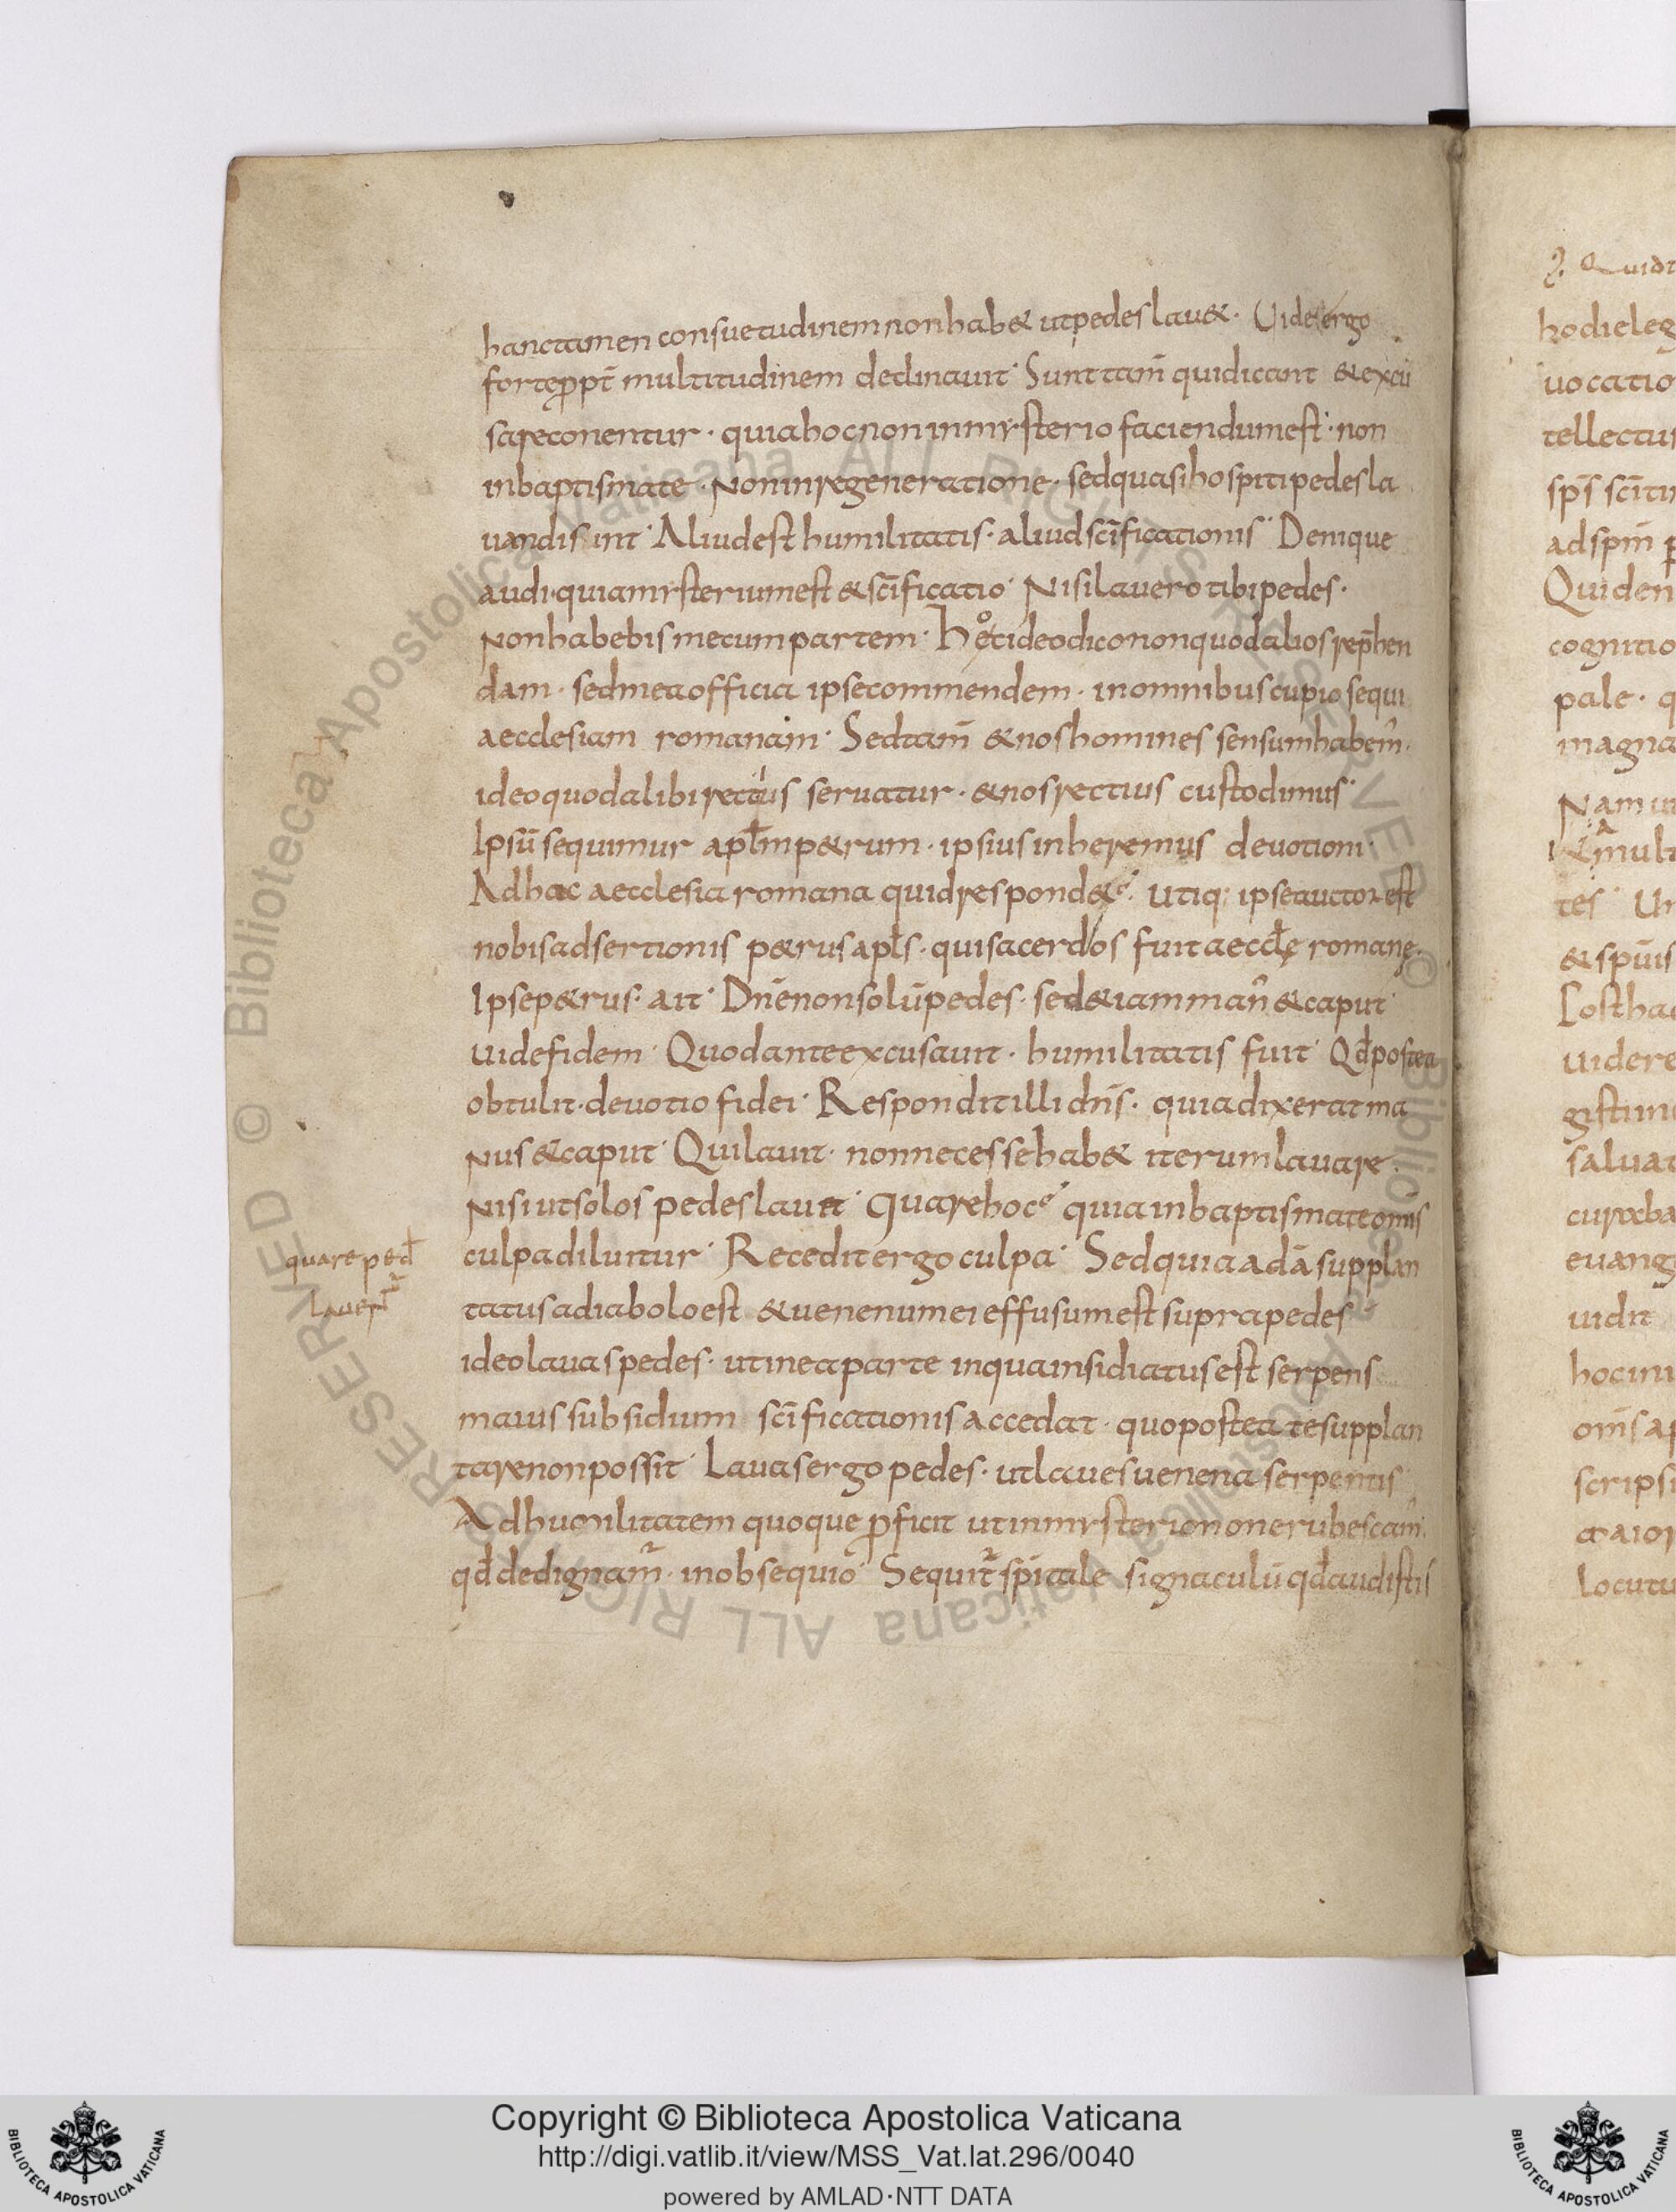 hanc tamen consuetudinem non hab& ut pedes lau&· Uide ergo
forte ꝓpt̄ multitudinem declinauit· Sunt tam̄ qui dicant & excu
sare conentur· quia hoc non in mysterio faciendum est· non
in baptismate· Non in regeneratione· sed quasi hospiti pedes la
uandi sint· Aliud est humilitatis· aliud sc̄ificationis· Denique
audi· quia mysterium est & sc̄ificatio· Nisi lauero tibi pedes·
Non habebis mecum partem· ideo dico non quod alios rep̄hen
dam· sed mea officia ipse commendem· in omnibus cupio sequi
aecclesiam romanam· Sed tam̄ & nos homines sensum habem̄·
ideo quod alibi rectius seruatur· & nos rectius custodimus·
Ipsū sequimur apl̄m p&rum· ipsius inheremus deuotioni·
Ad hac aecclesia romana quid respond&· Utiq; ipse auctor est
nobis adsertionis p&rus apl̄s· qui sacerdos fuit aeccl̄ę romanę·
Ipse p&rus· ait· Dn̄e non solū pedes· sed &iam man̄ & caput·
uide fidem· Quod ante excusauit· humilitatis fuit· Qd̄ postea
obtulit· deuotio fidei· Respondit illi dn̄s· quia dixerat ma
nus & caput· Qui lauit· non necesse hab& iterum lauare·
Nisi ut solos pedes lauet· Quare hoc quia in baptismate om̄is
culpa diluitur· Recedit ergo culpa· Sed quia adā supplan
tatus a diabolo est & uenenum ei effusum est supra pedes
ideo lauas pedes· ut in ea parte in qua insidiatus est serpens
maius subsidium sc̄ificationis accedat· quo postea te supplan
tare non possit· Lauas ergo pedes· ut laues uenena serpentis·
Ad humilitatem quoque ꝓficit ut in mysterio non erubescam̄·
qd̄ dedignam̄· in obsequio· Sequit̄ sp̄itale signaculū qd̄ audistis
quare ped̄
lauent̄
Quid
hodie leg
uocatio
tellectus
sp̄s
ad
Quid en
cognitio
pale· q
magna
Nam
mult
tes·
& sp̄us
uidere
saluat
euang
uidit
hoc ini
om̄s
scripsi
locutu
Biblioteca Apostolica Vaticana ALL RIGHTS RESERVED © Biblioteca Apostolica Vaticana ALL RIGHTS RESERVED ©
Copyright © Biblioteca Apostolica Vaticana
http://digi.vatlib.it/view/MSS_Vat.lat.296/0040
powered by AMLAD·NTT DATA
BIBLIOTECA APOSTOLICA VATICANA
BIBLIOTECA APOSTOLICA VATICANA